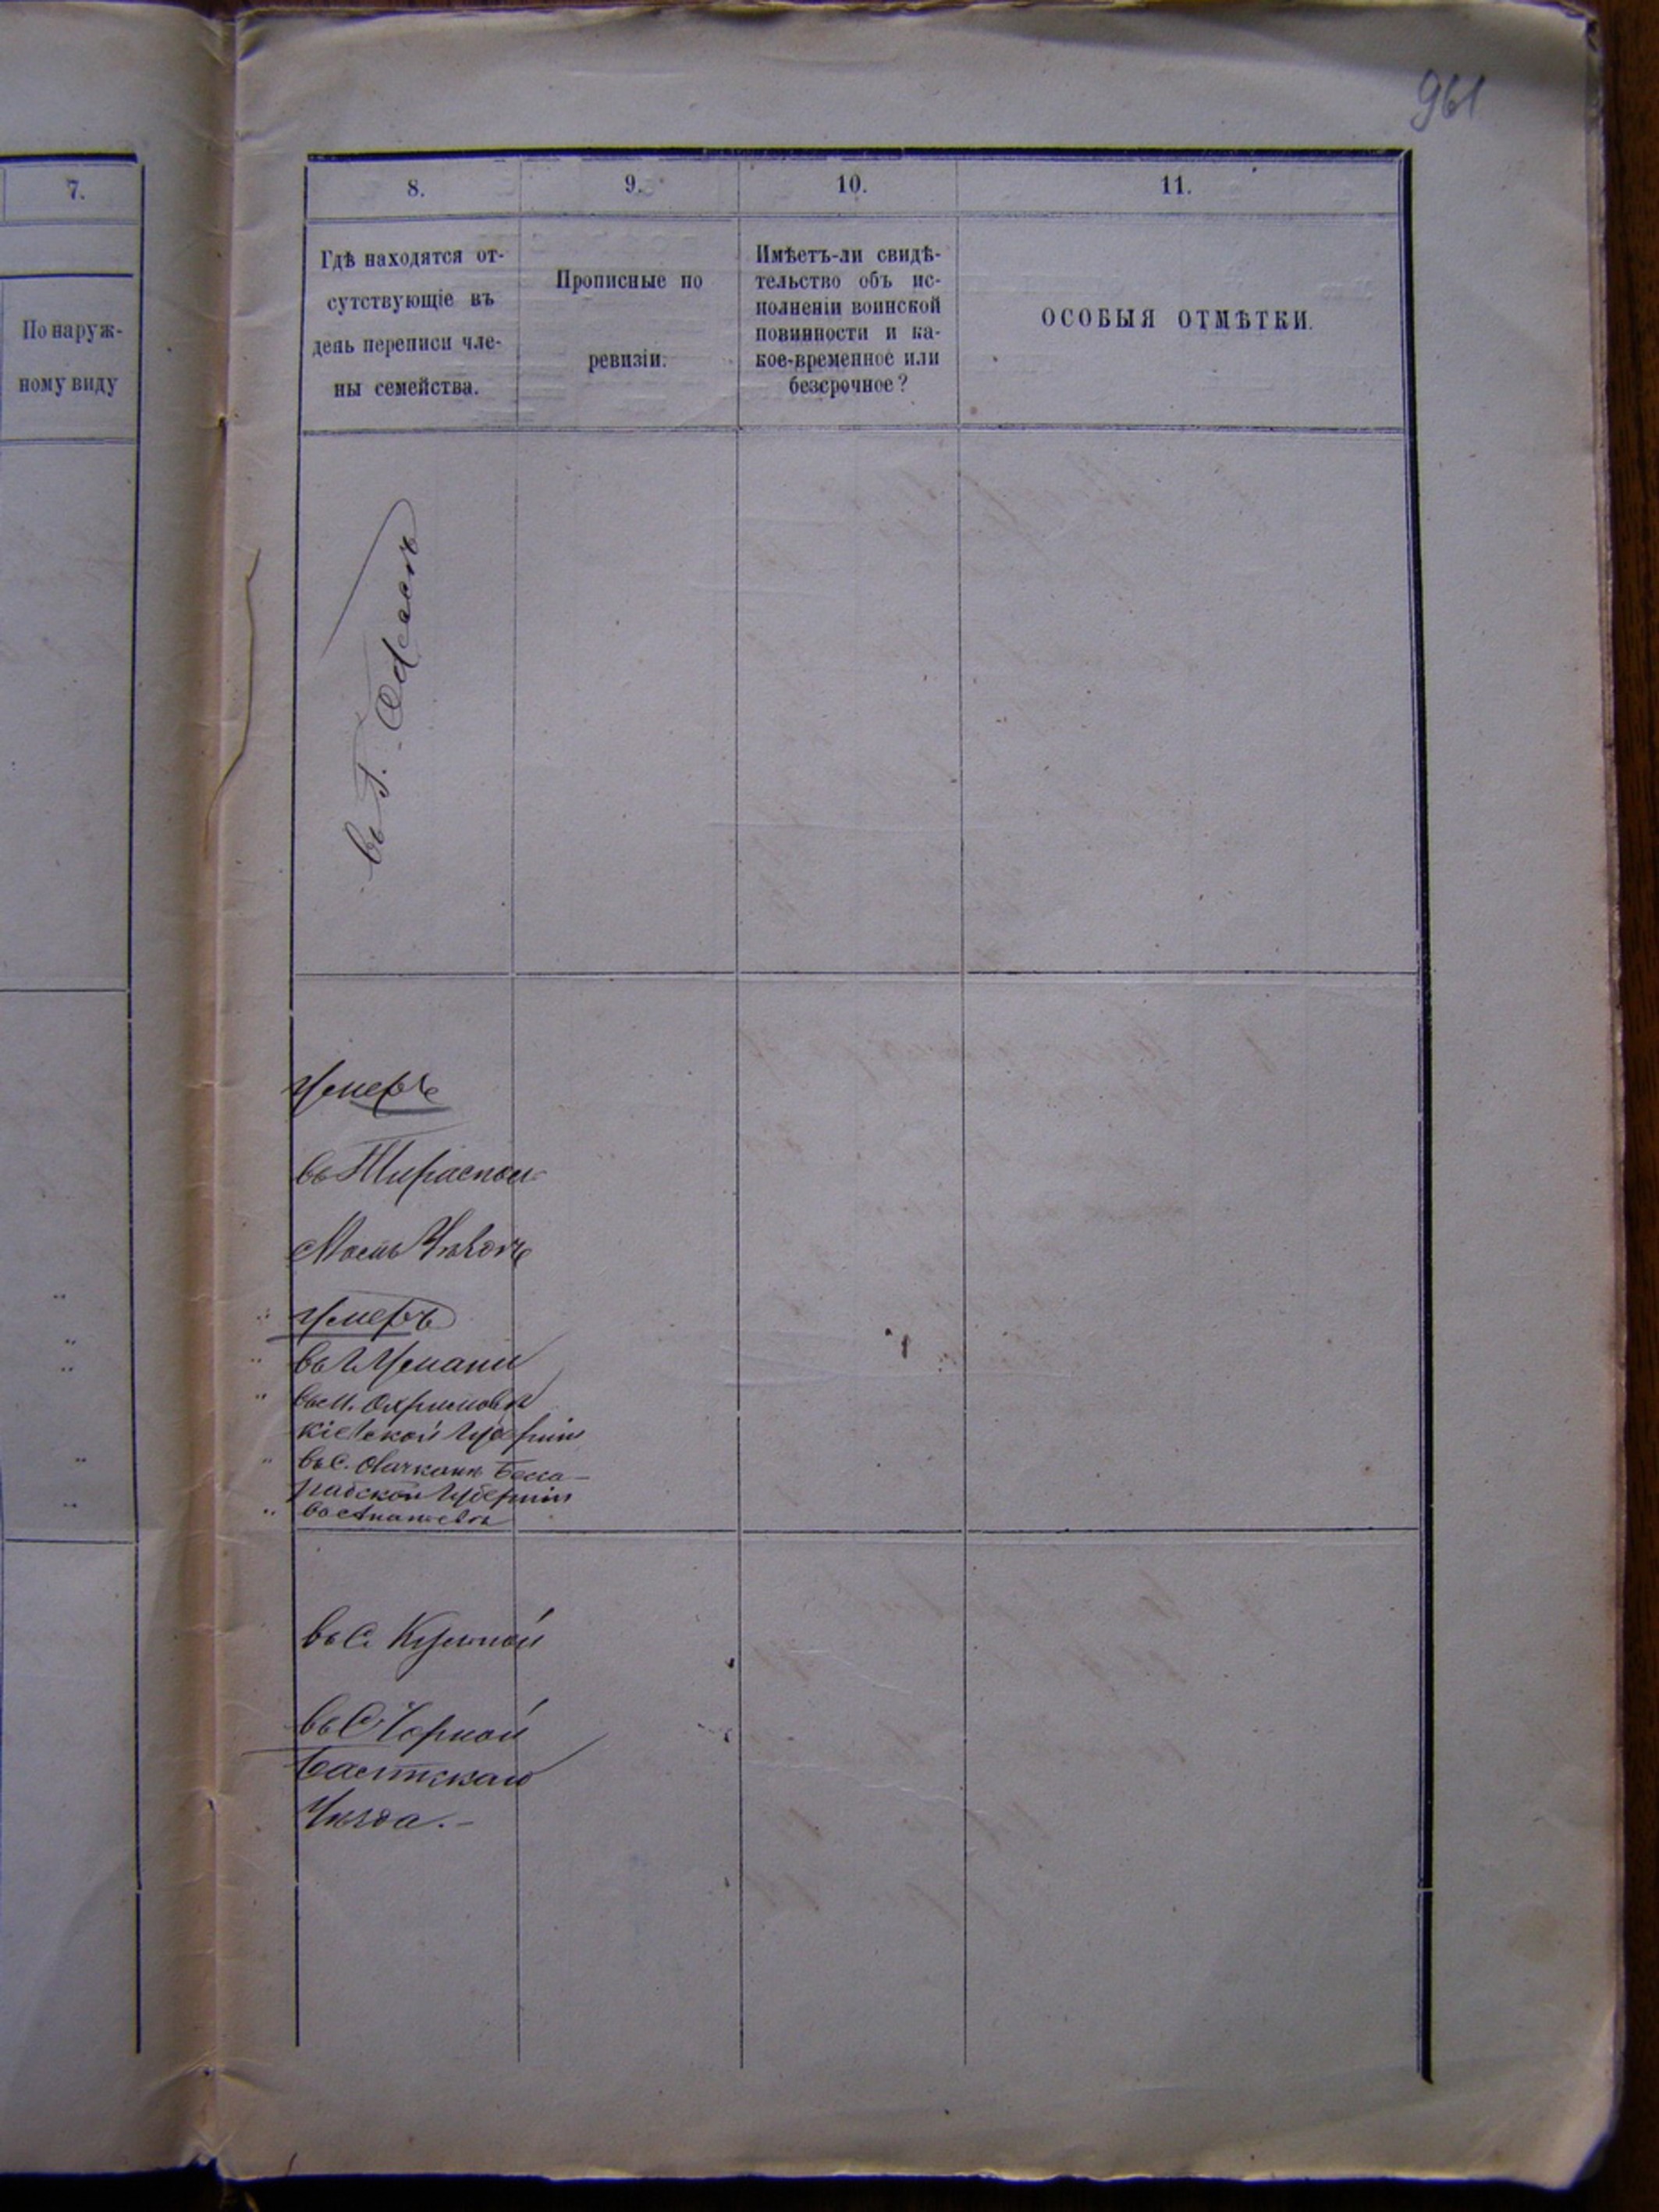 961
7.
По наруж-
ному виду
8.
9.
10.
11.
Гдѣ находятся от-
сутствующіе въ
день переписи чле-
ны семейства.
Прописные по
ревизіи.
Имѣетъ-ли свидѣ-
тельство объ ис-
полненіи воинской
повинности и ка-
кое-временное или
безсрочное?
ОСОБЫЯ ОТМѢТКИ.
въ г. Одессѣ
Умеръ
въ Тираспол
Умеръ
въ г Умани
въ м.
Кіевской Губерніи
въ с. Бесса-
рабской Губерніи
въ Ананьевѣ
въ с.
въ с Чорной
Уѣзда.-